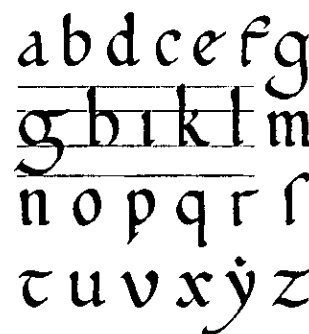 a b d c e f g
g h ı k l m
n o p q r ſ
τ u v x ẏ z